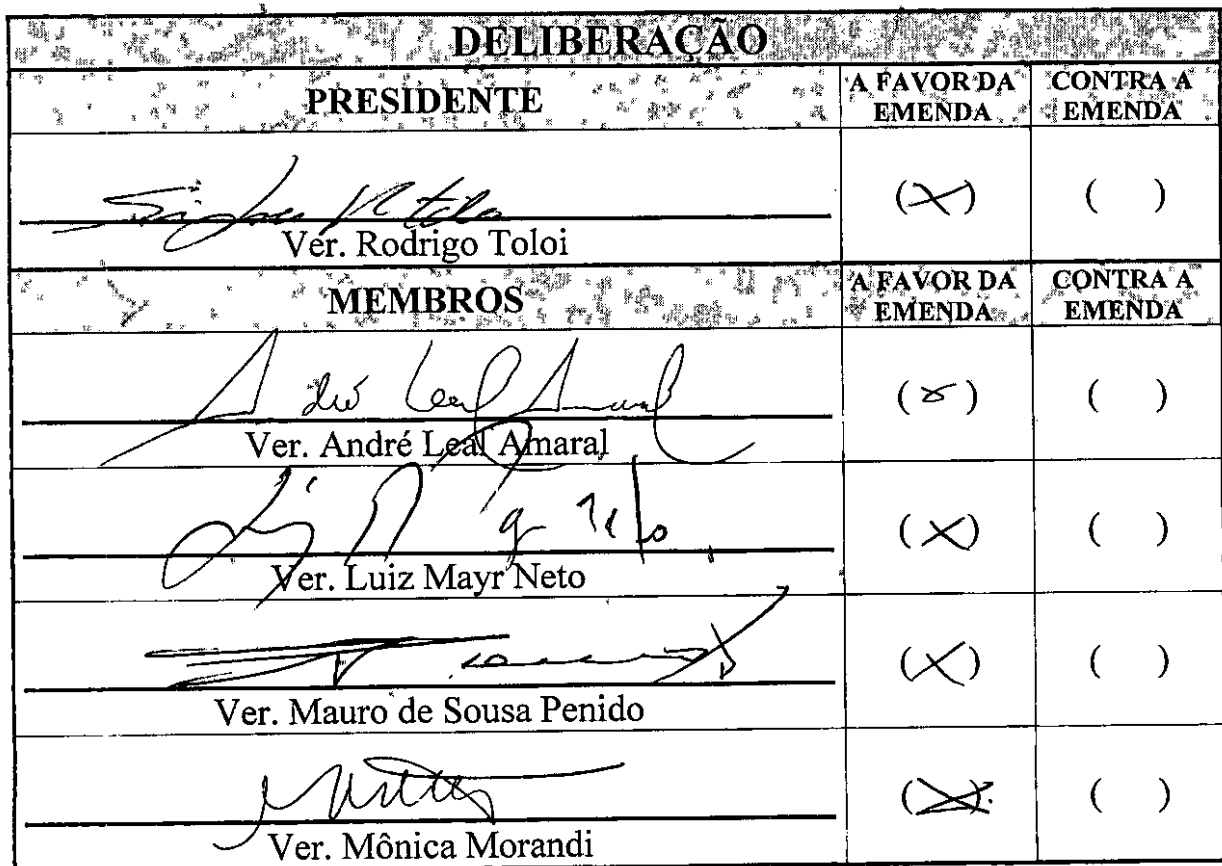 DELIBERAÇÃO
PRESIDENTE A FAVOR DA EMENDA CONTRA A EMENDA
(X) ( )
Ver. Rodrigo Toloi
MEMBROS A FAVOR DA EMENDA CONTRA A EMENDA
André Leal Amaral (X) ( )
Ver. André Leal Amaral
(X) ( )
Ver. Luiz Mayr Neto
(X) ( )
Ver. Mauro de Sousa Penido
(X) ( )
Ver. Mônica Morandi